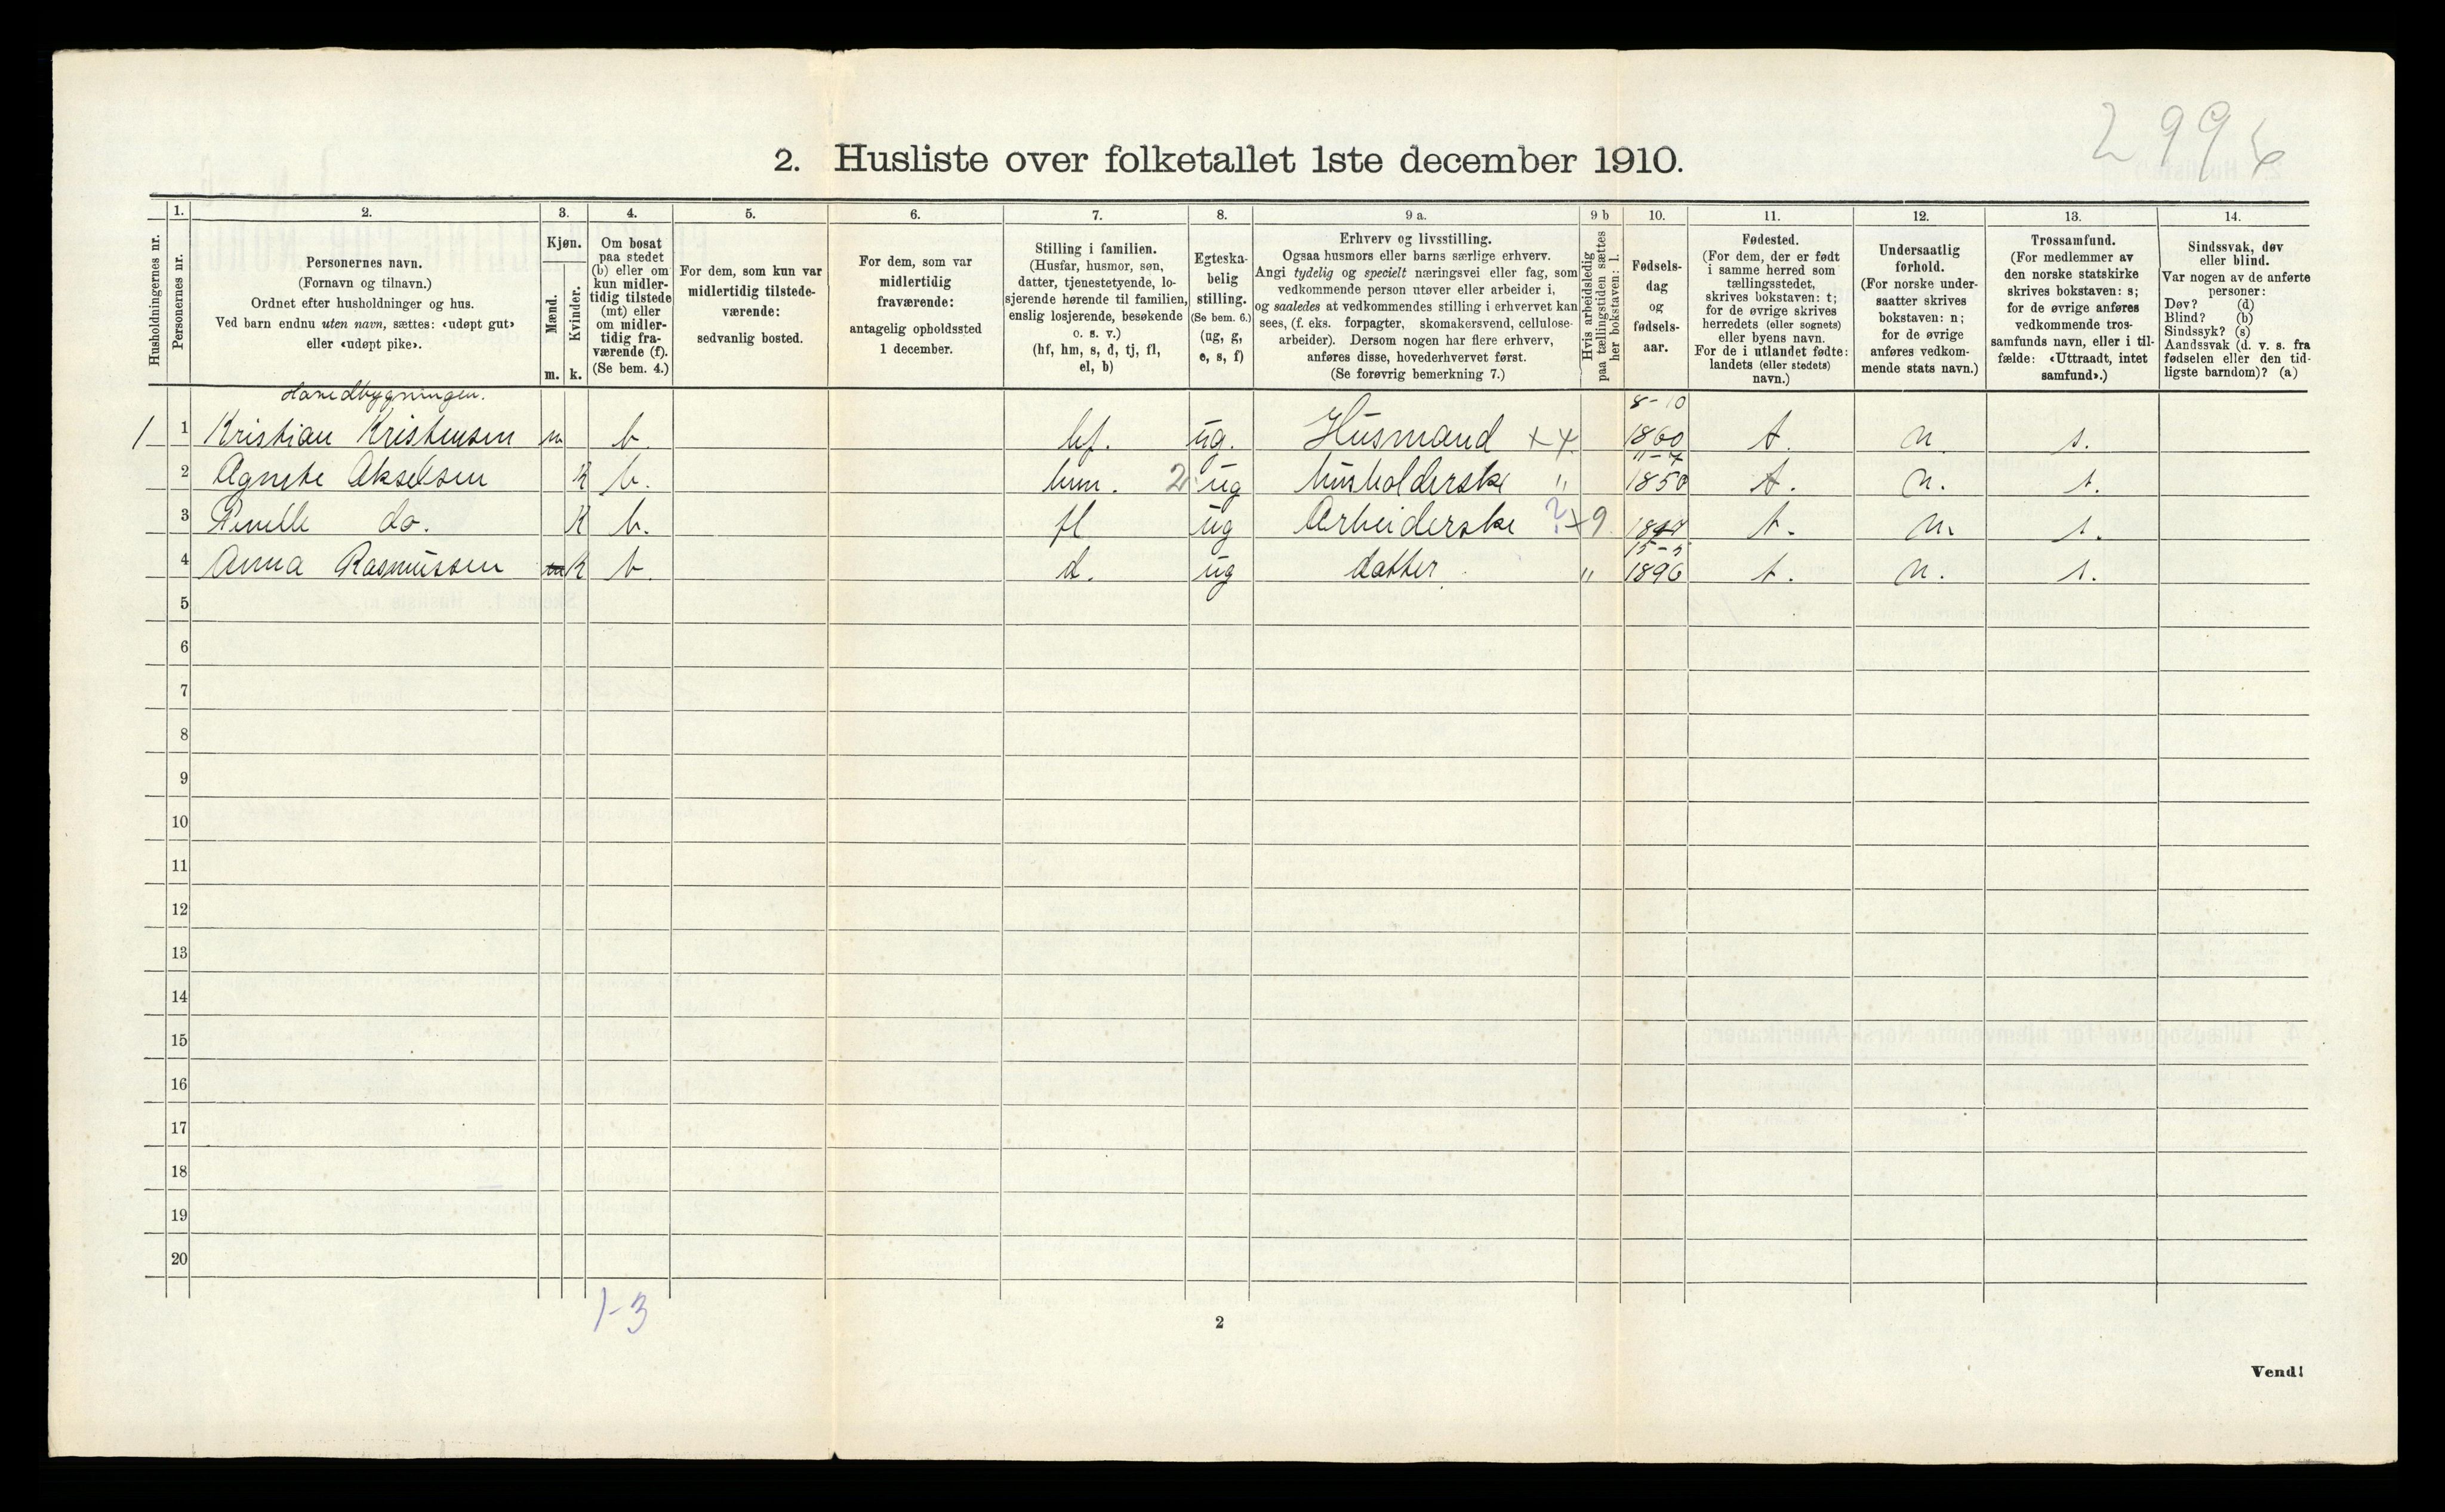 2996
2. Husliste over folketallet 1ste december 1910.
Husholdningernes nr.
1.
Personernes nr.
2.
Personernes navn.
(Fornavn og tilnavn.)
Ordnet efter husholdninger og hus.
Ved barn endnu uten navn, sættes: «udøpt gut»
eller «udøpt pike».
3.
Kjøn.
Mænd.
Kvinder.
m. k.
4.
Om bosat
paa stedet
(b) eller om
kun midler-
tidig tilstede
(mt) eller
om midler-
tidig fra-
værende (f).
(Se bem. 4.)
5.
For dem, som kun var
midlertidig tilstede-
værende:
sedvanlig bosted.
6.
For dem, som var
midlertidig
fraværende:
antagelig opholdssted
1 december.
7.
Stilling i familien.
(Husfar, husmor, søn,
datter, tjenestetyende, lo-
sjerende hørende til familien,
enslig losjerende, besøkende
o. s. v.)
(hf, hm, s, d, tj, fl,
el, b)
8.
Egteska-
belig
stilling.
(Se bem. 6.)
(ug, g,
e, s, f)
9 a.
Erhverv og livsstilling.
Ogsaa husmors eller barns særlige erhverv.
Angi tydelig og specielt næringsvei eller fag, som
vedkommende person utøver eller arbeider i,
og saaledes at vedkommendes stilling i erhvervet kan
sees, (f. eks. forpagter, skomakersvend, cellulose-
arbeider). Dersom nogen har flere erhverv,
anføres disse, hovederhvervet først.
(Se forøvrig bemerkning 7.)
9 b
Hvis arbeidsledig
paa tællingstiden sættes
her bokstaven: l.
10.
Fødsels-
dag
og
fødsels-
aar.
11.
Fødested.
(For dem, der er født
i samme herred som
tællingsstedet,
skrives bokstaven: t;
for de øvrige skrives
herredets (eller sognets)
eller byens navn.
For de i utlandet fødte:
landets (eller stedets)
navn.)
12.
Undersaatlig
forhold.
(For norske under-
saatter skrives
bokstaven: n;
for de øvrige
anføres vedkom-
mende stats navn.)
13.
Trossamfund.
(For medlemmer av
den norske statskirke
skrives bokstaven: s;
for de øvrige anføres
vedkommende tros-
samfunds navn, eller i til-
fælde: «Uttraadt, intet
samfund».)
14.
Sindssvak, døv
eller blind.
Var nogen av de anførte
personer:
Døv? (d)
Blind? (b)
Sindssyk? (s)
Aandssvak (d. v. s. fra
fødselen eller den tid-
ligste barndom)? (a)
Hovedbygningen.
1 1 Kristian Kristensen m b. hf. ug. Husmand x 4 8-10 1860 t. n. s.
2 Agnete Akselsen K b. hm. 2 ug husholderske " 11-7 1850 t. n. s.
3 do. K b. fl ug Arbeiderske ? x 9 t. n. s.
4 Anna Rasmussen K b. d. ug datter " 15-5 1896 t. n. s.
5
6
7
8
9
10
11
12
13
14
15
16
17
18
19
20
1-3
2
Vend!